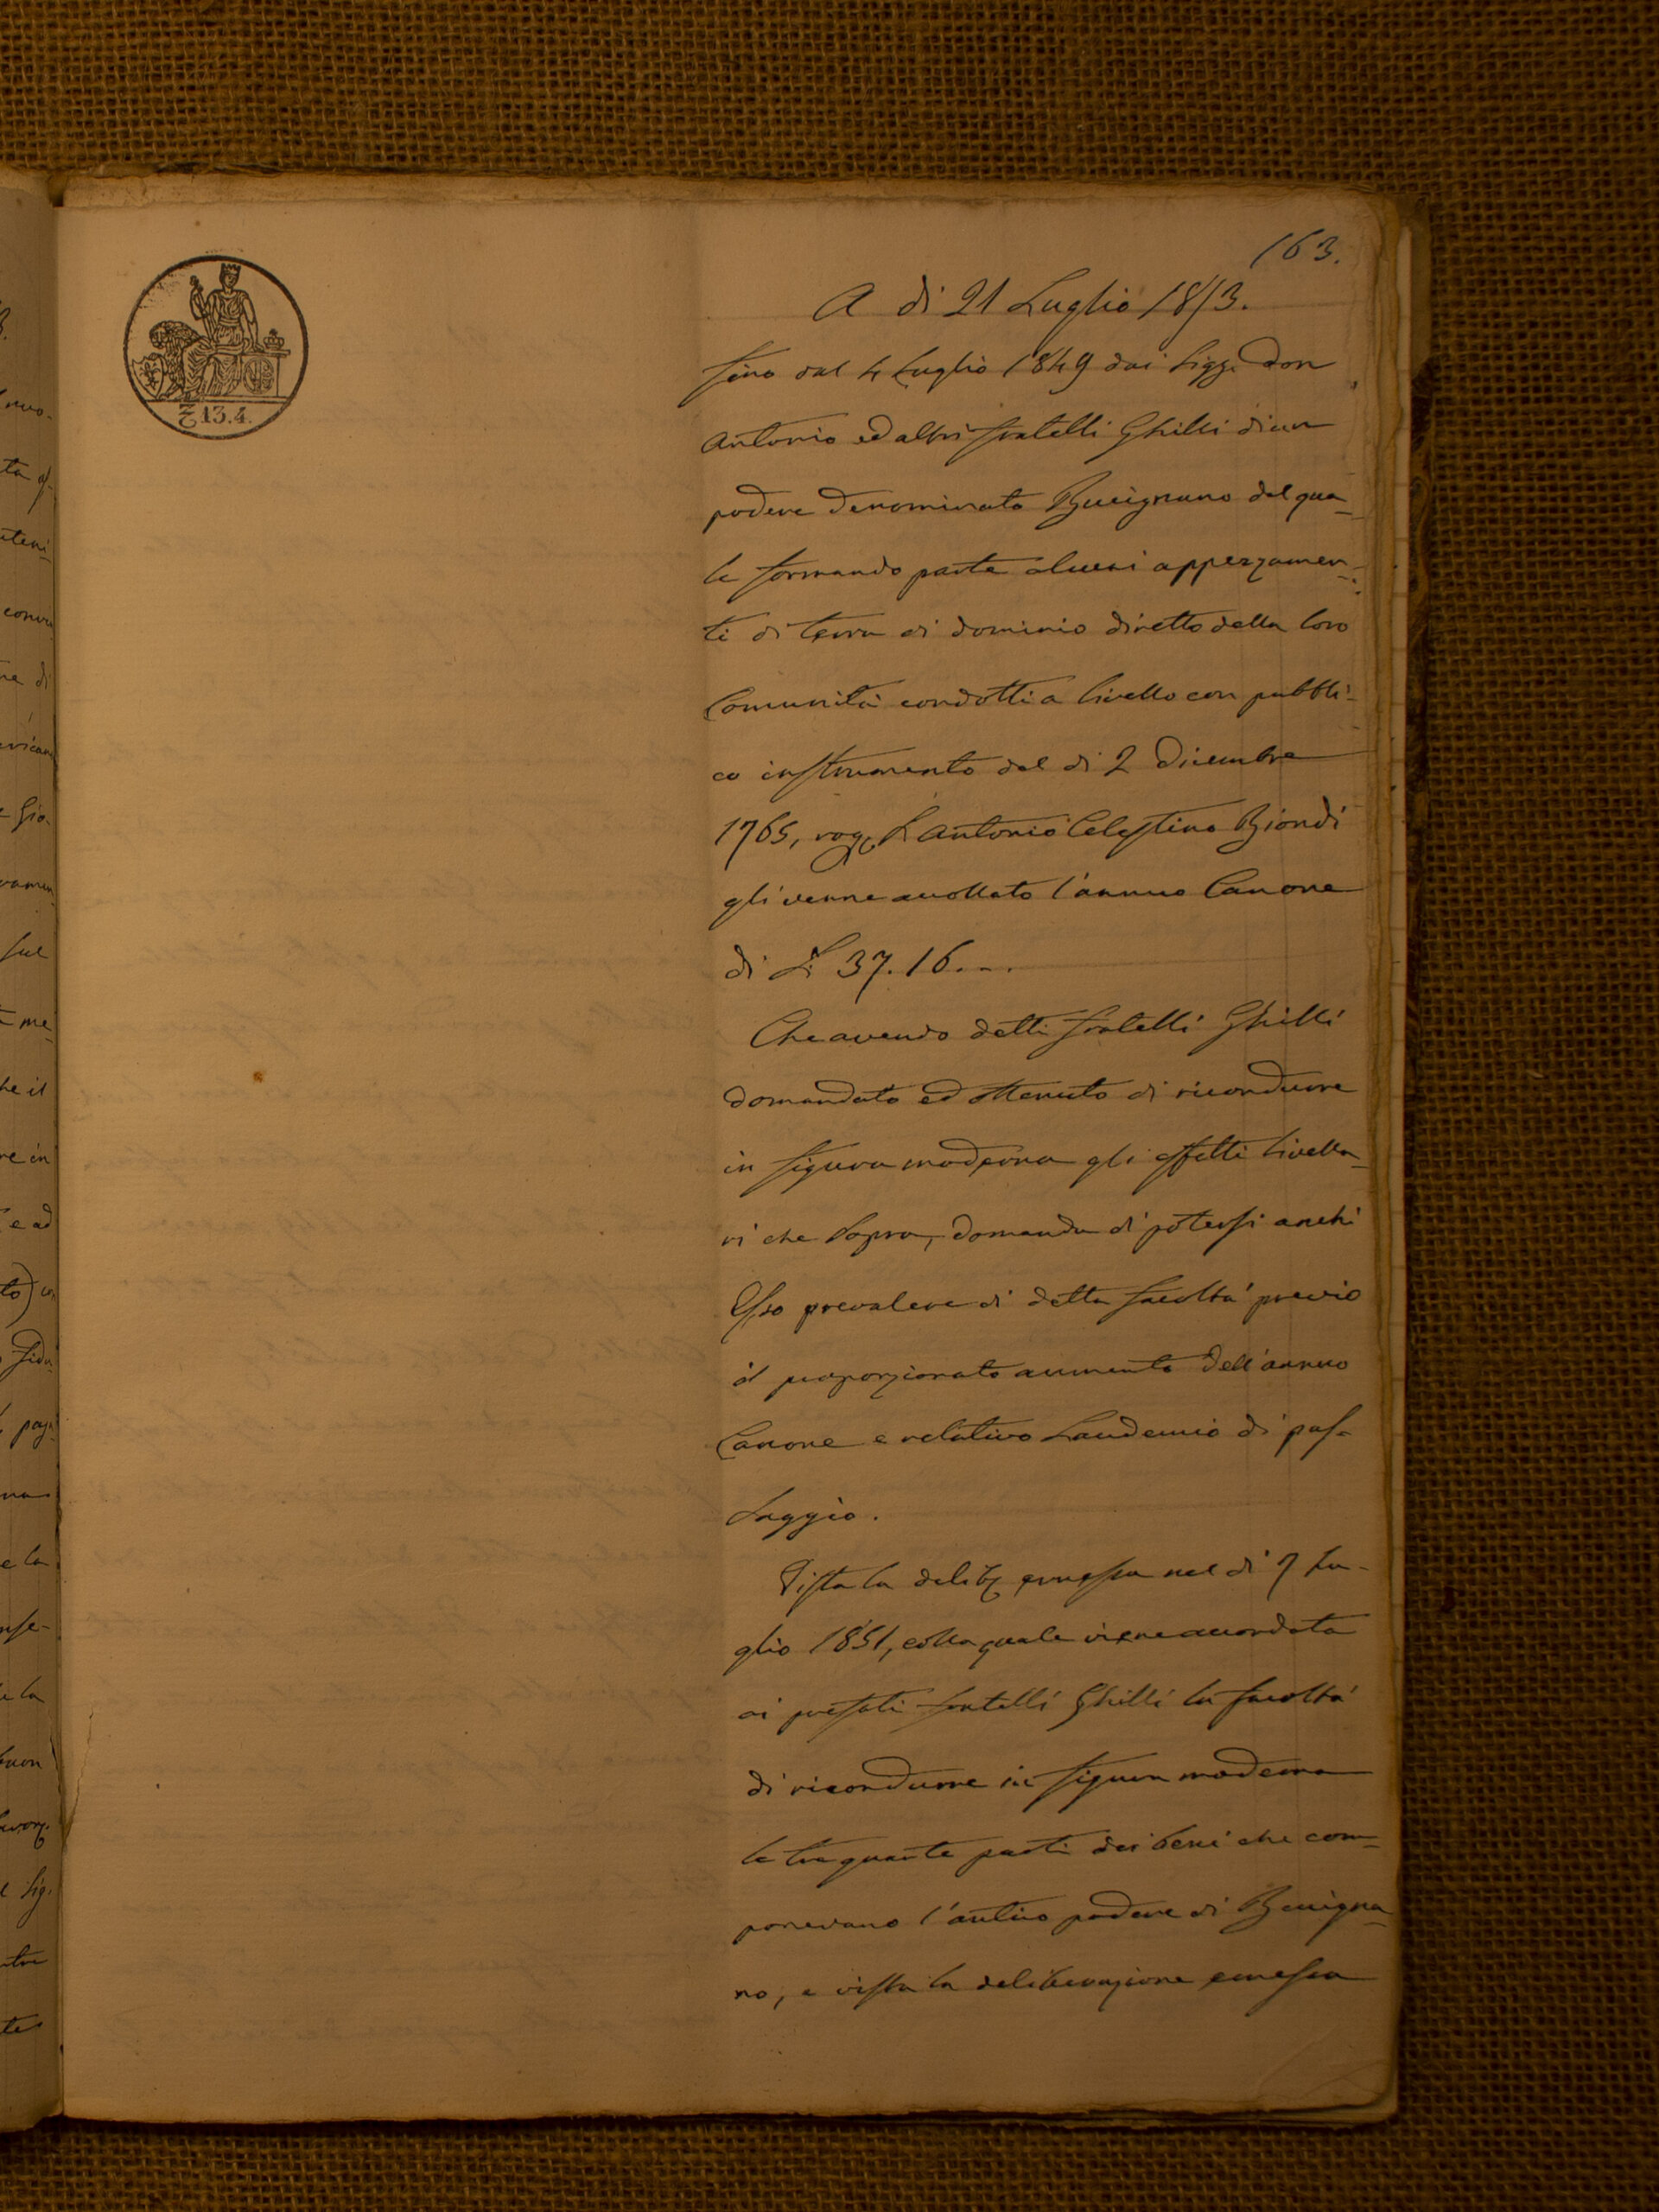 163.
A di 21 Luglio 1853.
fino dal 4 Luglio 1849 dai Sigg. Don
Antonio ed altri fratelli Ghilli di un
podere denominato Bucignano del qua-
le formando parte alcuni appezzamen-
ti di terra di dominio diretto della loro
Comunità condotti a livello con pubbli-
co instrumento del di 2 Dicembre
1765, rog. Antonio Celestino Biondi
gli venne accollato l'annuo Canone
di L. 37.16.-.
Che avendo detti fratelli Ghilli
domandato ed ottenuto di ricondurre
in figura moderna gli effetti livella-
ri che Sopra, domanda di potersi anchi
Esso prevalere di detta facoltà previo
il proporzionato aumento dell'annuo
Canone e relativo Laudemio di pas-
saggio.
Vista la delib. emessa nel di 7 Lu-
glio 1851, colla quale viene accordata
ai prefati fratelli Ghilli la facoltà
di ricondurre in figura moderna
le tre quarte parti dei beni che com-
ponevano l'antico podere di Bucigna-
no, e vista la deliberazione emessa
£ 13.4.